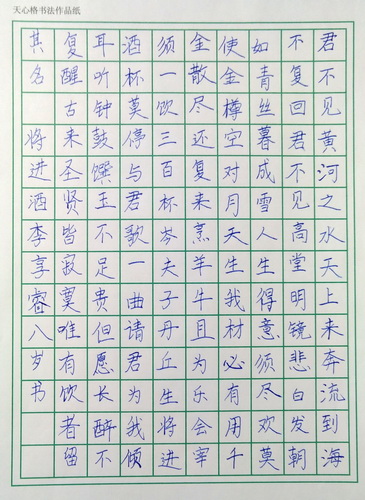 天心格书法作品纸
君不见黄河之水天上来奔流到海
不复回君不见高堂明镜悲白发朝
如青丝暮成雪人生得意须尽欢莫
使金樽空对月天生我材必有用千
金散尽还复来烹羊牛且为乐会宰
须一饮三百杯岑夫子丹丘生将进
酒杯莫停与君歌一曲请君为我倾
耳听钟鼓馔玉不足贵但愿长醉不
复醒古来圣贤皆寂寞唯有饮者留
其名 将进酒李享睿八岁书